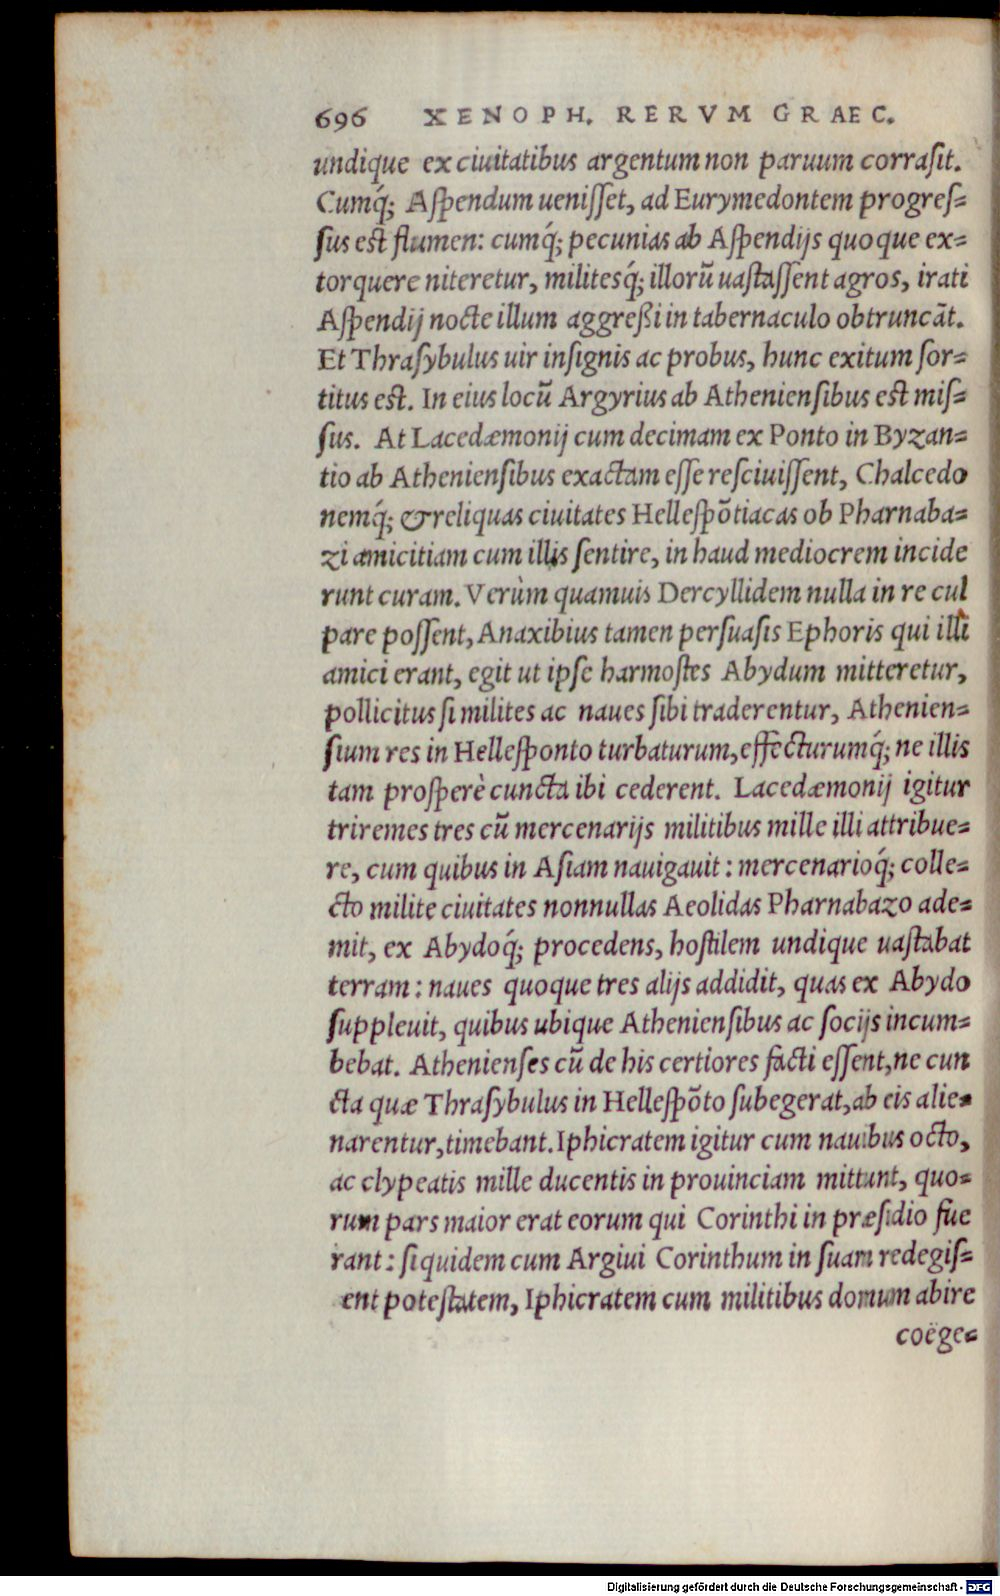 696 XENOPH. RERVM GRAEC.
undique ex ciuitatibus argentum non paruum corrasit.
Cumq́; Aspendum uenisset, ad Eurymedontem progres-
sus est flumen: cumq́; pecunias ab Aspendijs quoque ex-
torquere niteretur, militesq́; illorũ uastassent agros, irati
Aspendij nocte illum aggreßi in tabernaculo obtruncãt.
Et Thrasybulus uir insignis ac probus, hunc exitum sor-
titus est. In eius locũ Argyrius ab Atheniensibus est mis-
sus. At Lacedæmonij cum decimam ex Ponto in Byzan-
tio ab Atheniensibus exactam esse resciuissent, Chalcedo
nemq́; & reliquas ciuitates Hellespõtiacas ob Pharnaba-
zi amicitiam cum illis sentire, in haud mediocrem incide
runt curam. Verùm quamuis Dercyllidem nulla in re cul
pare possent, Anaxibius tamen persuasis Ephoris qui illi
amici erant, egit ut ipse harmostes Abydum mitteretur,
pollicitus si milites ac naues sibi traderentur, Athenien-
sium res in Hellesponto turbaturum, effecturumq́; ne illis
tam prosperè cuncta ibi cederent. Lacedæmonij igitur
triremes tres cũ mercenarijs militibus mille illi attribue-
re, cum quibus in Asiam nauigauit: mercenarioq́; colle-
cto milite ciuitates nonnullas Aeolidas Pharnabazo ade-
mit, ex Abydoq́; procedens, hostilem undique uastabat
terram: naues quoque tres alijs addidit, quas ex Abydo
suppleuit, quibus ubique Atheniensibus ac socijs incum-
bebat. Athenienses cũ de his certiores facti essent, ne cun
cta quæ Thrasybulus in Hellespõto subegerat, ab eis alie-
narentur, timebant. Iphicratem igitur cum nauibus octo,
ac clypeatis mille ducentis in prouinciam mittunt, quo-
rum pars maior erat eorum qui Corinthi in præsidio fue
rant: siquidem cum Argiui Corinthum in suam redegis-
ent potestatem, Iphicratem cum militibus domum abire
coëge-
Digitalisierung gefördert durch die Deutsche Forschungsgemeinschaft - DFG